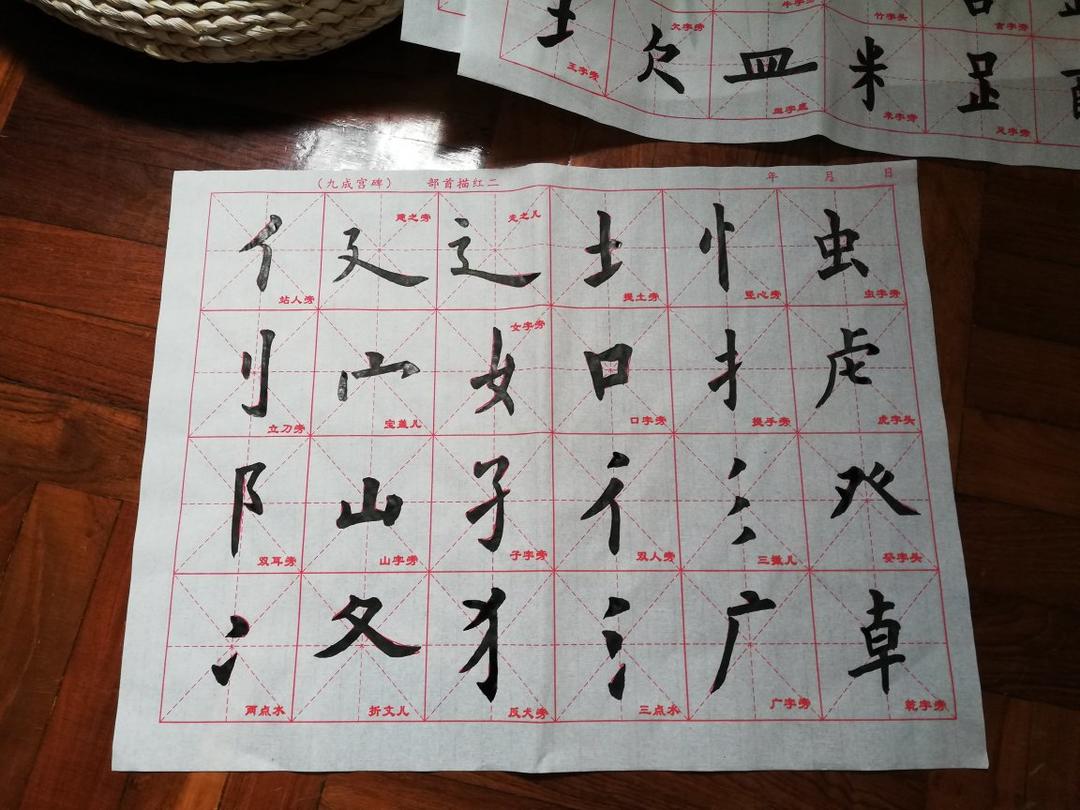 竹字头 言字旁
欠 皿 米 𧾷
王字旁 欠字旁 皿字底 米字旁 足字旁
（九成宫碑） 部首描红二 年 月 日
亻 廴 辶 土 忄 虫
站人旁 建之旁 走之儿 提土旁 竖心旁 虫字旁
刂 宀 女 口 扌 虍
立刀旁 宝盖儿 女字旁 口字旁 提手旁 虎字头
阝 山 子 彳 彡 癶
双耳旁 山字旁 子字旁 双人旁 三撇儿 癸字头
冫 夂 犭 氵 广 龺
两点水 折文儿 反犬旁 三点水 广字旁 乾字旁